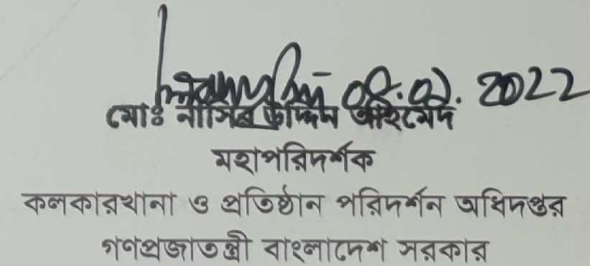 08.02.2022
মোঃ নাসির উদ্দিন আহমেদ
মহাপরিদর্শক
কলকারখানা ও প্রতিষ্ঠান পরিদর্শন অধিদপ্তর
গণপ্রজাতন্ত্রী বাংলাদেশ সরকার